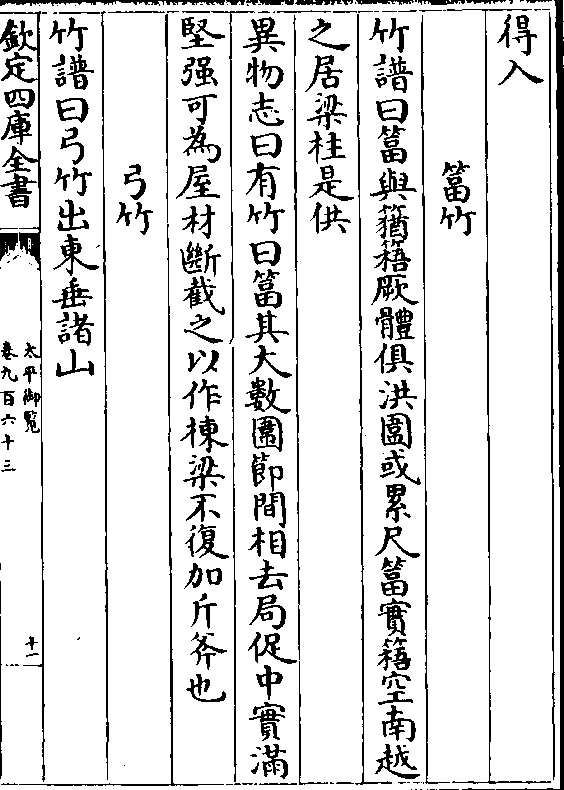 得入
篃竹
竹譜曰篃與𥰡簵厥體俱洪圍或累尺篃實簵空南越
之居梁柱是供
異物志曰有竹曰篃其大數圍節間相去局促中實滿
堅强可為屋材斷截之以作棟梁不復加斤斧也
弓竹
竹譜曰弓竹出東垂諸山
欽定四庫全書
太平御覧
卷九百六十三
十一